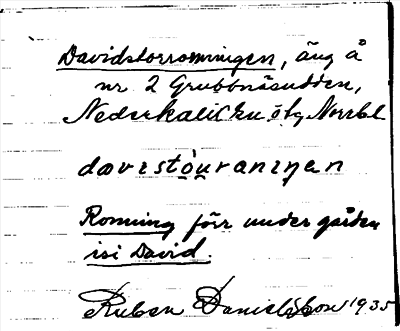 Davidstorromningen, äng å
nr 2 Grubbnäsudden,
Nederkalix sn ö. Norrbl
davistò̱u̱raniŋen
Romning förr under gården
isi David.
Ruben Danielsson 1935